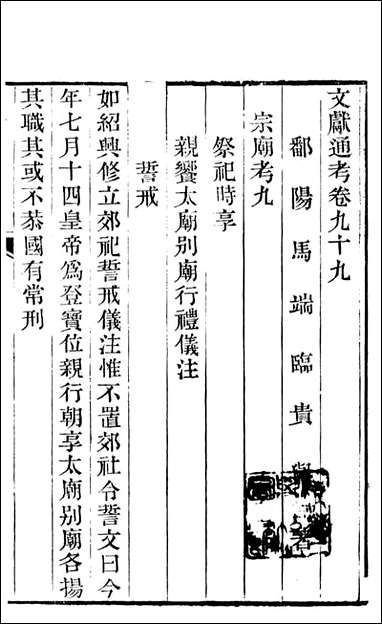 文獻通考卷九十九
鄱陽馬端臨貴與著
宗廟考九
祭祀時享
親饗太廟別廟行禮儀注
誓戒
如紹興修立郊祀誓戒儀注惟不置郊社令誓文曰今
年七月十四皇帝為登寶位親行朝享太廟別廟各揚
其職其或不恭國有常刑